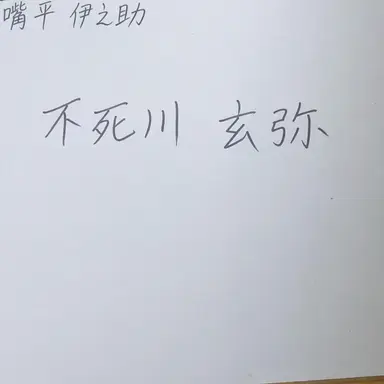 嘴平 伊之助
不死川 玄弥